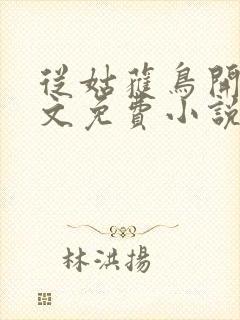 從姑獲鳥開
文免費小說
林洪揚